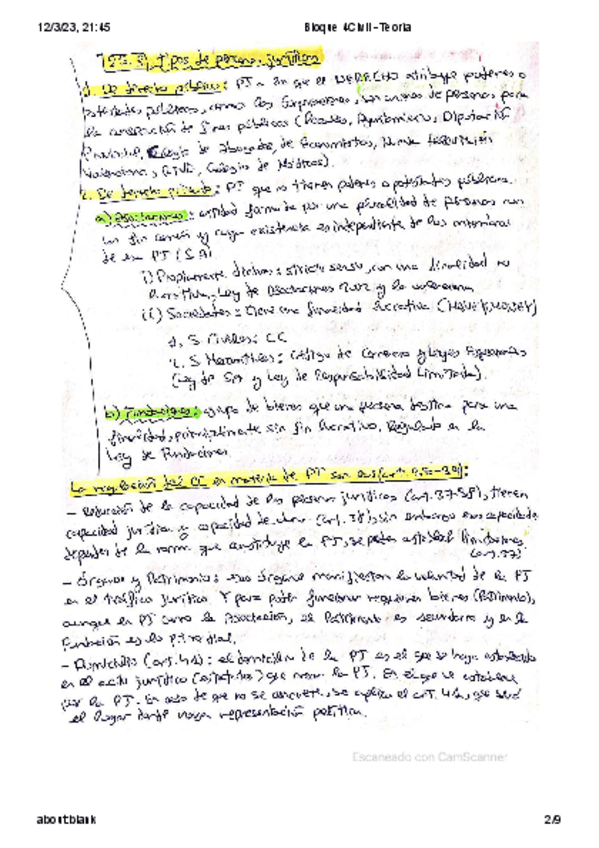 12/3/23, 21:45 Bloque 4Civil-Teoria
tipos de persona jurídica
1. De derecho público: PJ a las que el DERECHO atribuye poderes o
potestades públicas, como las
la consecución de fines públicos (Estado, Ayuntamiento, Diputación
Provincial, Colegio de Abogados, de Economistas,
Valenciana, Colegio de Médicos).
2. De derecho privado: PJ que no tienen poderes o potestades públicas.
a) Asociaciones: entidad formada por una pluralidad de personas con
un fin común y cuya existencia es independiente de los miembros
de esa PJ (SA)
i) Propiamente dichas: stricto sensu, con una finalidad no
lucrativa, Ley de Asociaciones 2002 y la valenciana
ii) Sociedades: tiene una finalidad lucrativa
1. S Civiles: CC
2. S Mercantiles: Código de Comercio y Leyes Especiales
(Ley de SA y Ley de Responsabilidad Limitada).
b) Fundaciones: grupo de bienes que una persona destina para una
finalidad, principalmente sin fin lucrativo. Regulado en la
Ley de Fundaciones.
La regulación del CC en materia de PJ son
- Regulación de la capacidad de las personas jurídicas (art. 37-38), tienen
capacidad jurídica y capacidad de obrar (art. 38), sin embargo esas capacidades
dependen de la norma que constituye la PJ, se puede establecer limitaciones
(art. 37)
- Órganos y Patrimonio: esos órganos manifiestan la voluntad de la PJ
en el tráfico jurídico. Y para poder funcionar requieren bienes (Patrimonio),
aunque en PJ como la Asociación, el Patrimonio es secundario y en la
Fundación es lo primordial.
- Domicilio (art. 41): el domicilio de la PJ es el que se haya establecido
en el acto jurídico (estatutos) que norma la PJ. En el que se establece
por la PJ. En caso de que no se concrete, se aplica el art. 41, que será
el lugar donde haya representación
Escaneado con CamScanner
about:blank 2/9